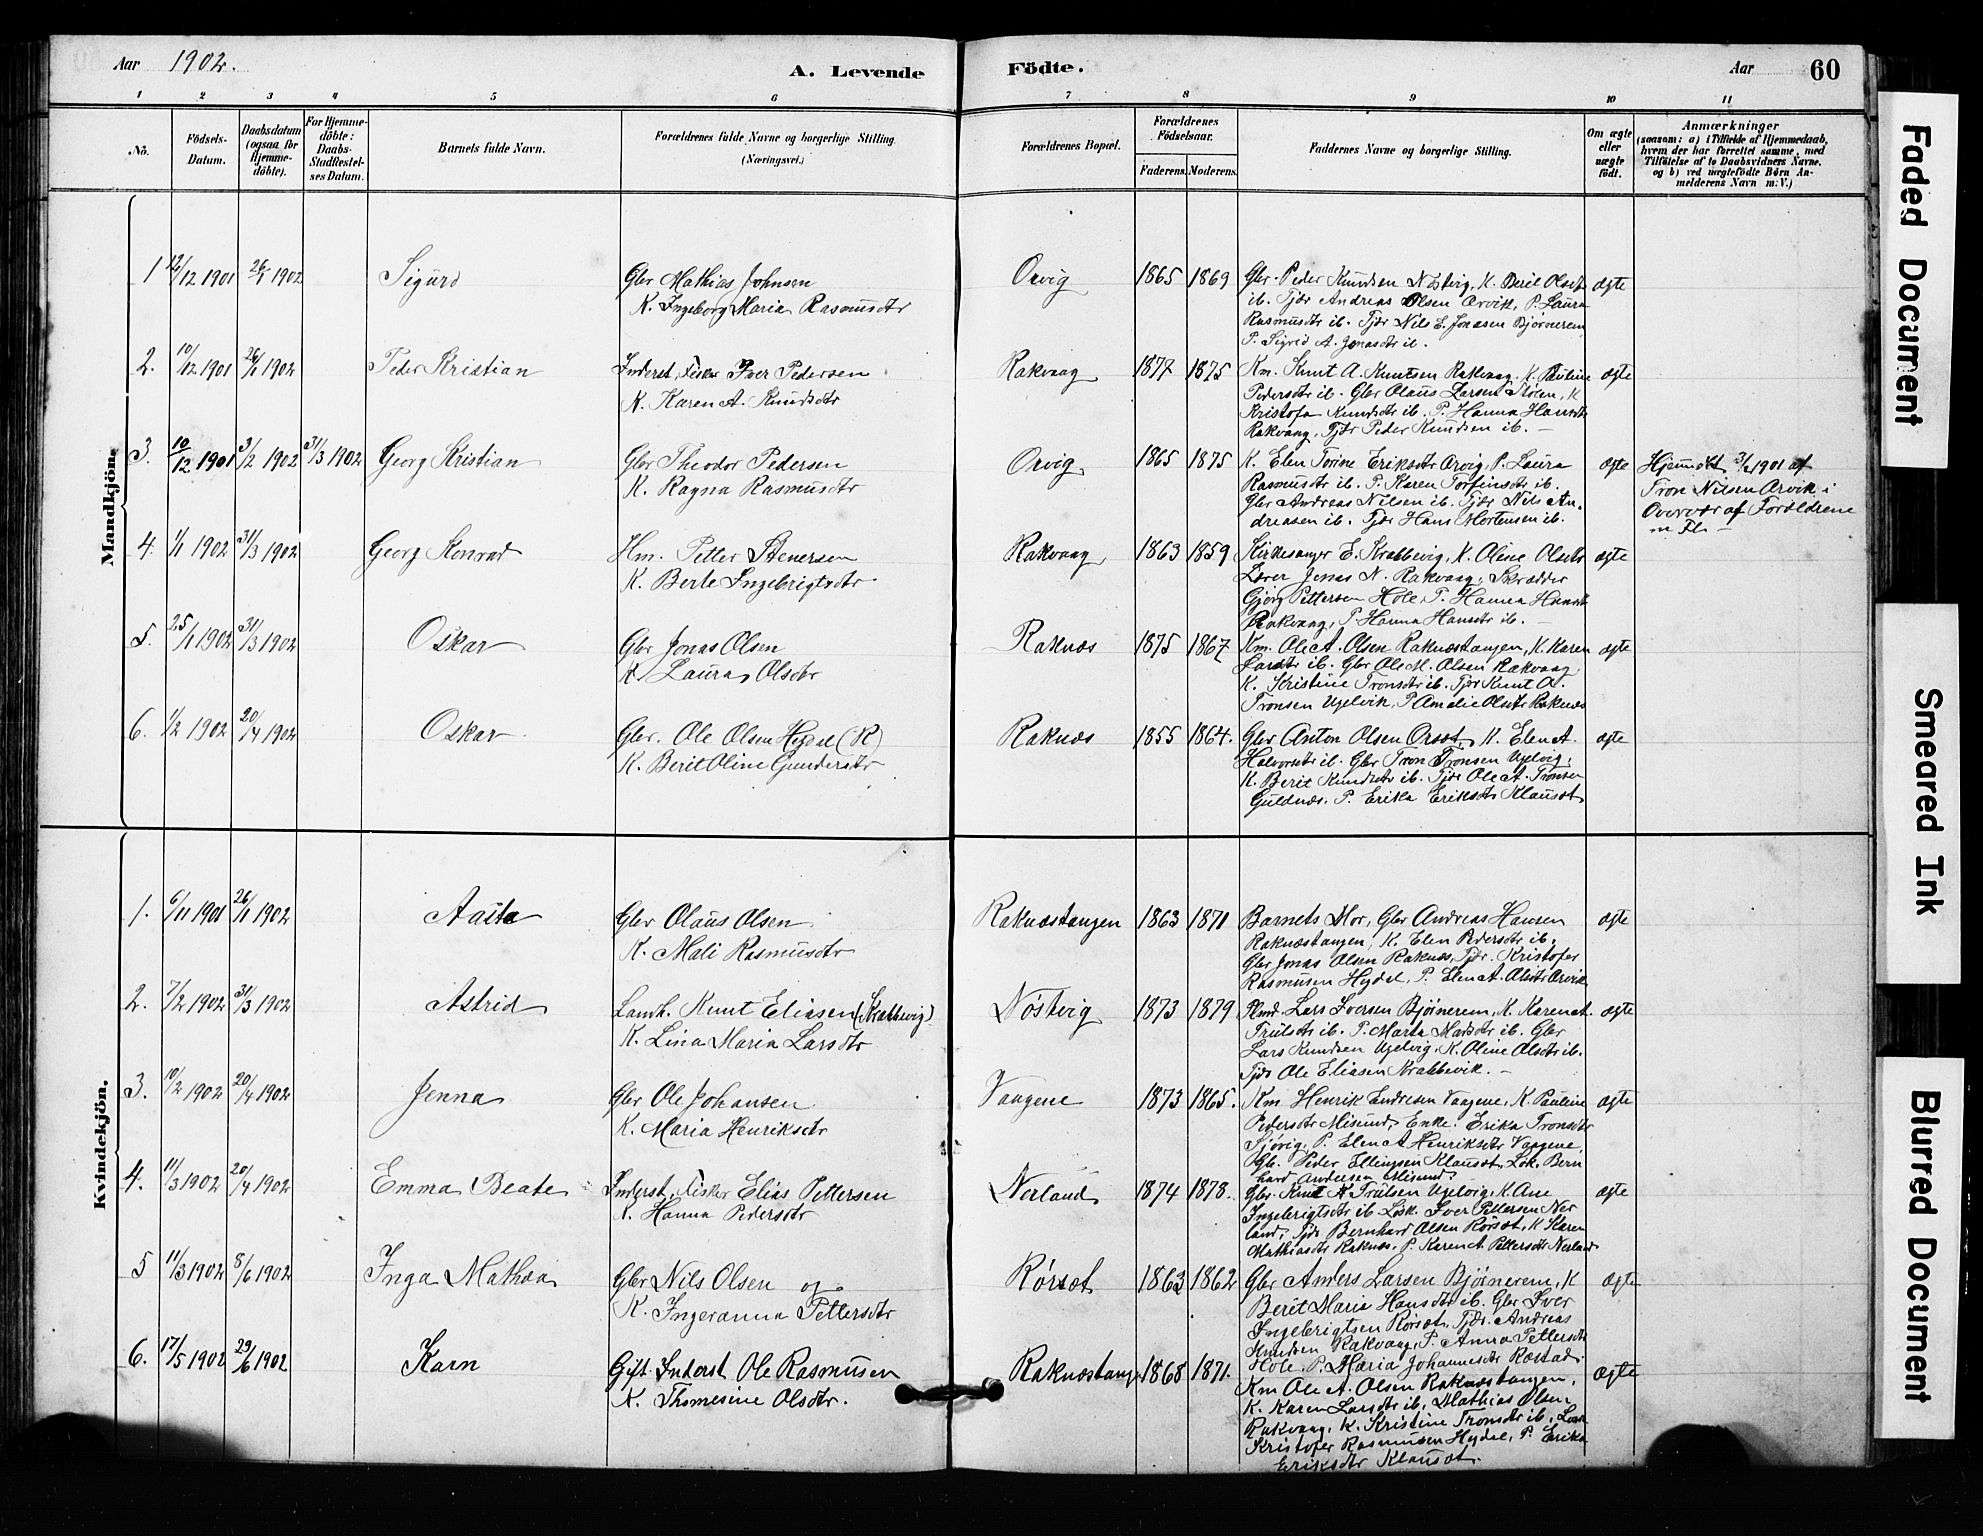 Aar 1902.
A. Levende Födte.
Aar 60
1 2 3 4 5 6 7 8 9 10 11
No.
Födsels-Datum.
Daabsdatum (ogsaa for Hjemme-döbte).
For Hjemme-döbte: Daabs-Stadfestel-ses Datum.
Barnets fulde Navn.
Forældrenes fulde Navne og borgerlige Stilling
(Næringsvei.)
Forældrenes Bopæl.
Forældrenes Födselsaar.
Faderens. Moderens.
Faddernes Navne og borgerlige Stilling.
Om ægte eller uægte födt.
Anmærkninger
(saasom: a) i Tilfælde af Hjemmedaab, hvem der har forrettet samme, med Tilföielse af to Daabsvidners Navne. og b) ved uægtefödte Børn An-melderens Navn m: V.)
Mandkjön.
1 12/12 1901 26/1 1902 Sigurd
Gbr Mathias Johnsen
K. Ingeborg Maria Rasmusdtr
Orvig 1865 1869
Gbr. Peder Knudsen Nöstvig, K. Berit Olsdtr
ib. Tjdr Andreas Olsen Orvik, P. Laura
Rasmusdtr ib. Tjdr Nils E. Jonasen Bjørnerem
P. Sigrid A. Jonasdtr ib.
ægte
2. 10/12 1901 26/1 1902 Peder Kristian
Inderst, Fisker Iver Pedersen
K. Karen A. Knudsdtr
Rakvaag 1877 1875
Km. Knut A. Knutsen Rakvaag, K. Pauline
Pedersdtr ib. Gbr Olaus Larsen Stølen, K
Kristofa Knudsdtr ib. P. Hanna Hansdtr
Rakvaag, Tjdr Peder Knudsen ib. —
ægte
3. 10/12 1901 3/2 1902 31/3 1902 Georg Kristian
Gbr Theodor Pedersen
K. Ragna Rasmusdtr
Orvig 1865 1875
K. Elen Torine Eriksdtr Orvig, P. Laura
Rasmusdtr ib. P. Karen Torfinsdtr ib.
Gbr Andreas Nilsen ib. Tjdr Nils An-
dreasen ib. Tjdr Hans Mortensen ib.
ægte
Hjemdbt 3/2 1901 af
Tron Nilsen Orvik i
Overvær af Forældrene
m Fl —
4. 1/1 1902 31/3 1902 Georg Konrad
Hm. Petter Stenersen
K. Berte Ingebrigtsdtr
Rakvaag 1863 1859
Kirkesanger E. Krabbevig, K. Oline Olsdtr
Lærer Jonas N. Rakvaag, Skrædder
Gjørg Pettersen Hole, P. Hanna Hansdt
Rakvaag, P. Hanna Hansdtr ib. —
ægte
5. 25/1 1902 31/3 1902 Oskar
Gbr Jonas Olsen
K. Laura Olsdtr
Raknæs 1875 1867
Km. Ole A. Olsen Raknæstangen, K. Karen
Larsdtr ib. Gbr Ole M. Olsen Rakvaag
K. Kristine Tronsdtr ib. Tjdr Knut A.
Tronsen Ugelvik, P Amalie Olsdtr Raknæs
ægte
6. 1/2 1902 20/4 1902 Oskar
Gbr. Ole Olsen Hydal (R)
K. Berit Oline Gundersdtr
Raknæs 1855 1864.
Gbr Anton Olsen Orset, K. Elen A.
Halvorsdtr ib. Gbr Tron Tronsen Ugelvig,
K. Berit Knudsdtr ib. Tjdr Ole A. Tronsen
Guldnæs. P. Erika Eriksdtr Klauset
ægte
Kvindekjön.
1. 6/11 1901 26/1 1902 Aasta
Gbr Olaus Olsen
K. Mali Rasmusdtr
Raknæstangen 1863 1871
Barnets Mor, Gbr Andreas Hansen
Raknæstangen, K. Elen Pedersdtr ib,
Gbr Jonas Olsen Raknæs, Tjdr. Kristofer
Rasmusen Hydal, P. Elen A. Olsdtr Orvik
ægte
2. 7/2 1902 31/3 1902 Astrid
Landh. Knut Eliasen (Krabbevig)
K. Lina Maria Larsdtr
Nöstvig 1873 1879
Lars Iversen Bjørnerem, K. Karen A.
Trulsdtr ib. P. Marta Madsdtr ib. Gbr
Lars Knudsen Ugelvig, K. Oline Olsdtr ib.
Tjdr Ole Eliasen Krabbevik. —
ægte
3. 10/2 1902 20/4 1902 Jenna
Gbr Ole Johansen
K. Maria Henriksdtr
Vaagene 1873 1865.
Km Henrik Endresen Vaagene, K Pauline
Pedersdtr Misund, Enke. Erika Tronsdtr
Sjövig, P. Elen A Henriksdtr Vaagene,
Gb. Peder Ellingsen Klauset, Løk. Bern
hard Andersen Misund
ægte
4. 11/3 1902 20/4 1902 Emma Beate
Inderst, Fisker Elias Pettersen
K. Hanna Pedersdtr
Nerland 1874 1878.
Gbr. Knut K Trulsen Ugelvig, K. Ane
Ingebrigtsdtr ib Løsk. Iver Pettersen Ner
land, Tjdr Bernhard Olsen Rörset, K Karen
Mathiasdtr Raknæs, P. Karen A. Pettersdtr Nerland
ægte
5 11/3 1902 8/6 1902 Inga Mathea
Gbr Nils Olsen og
K. Ingeranna Pettersdtr
Rörset 1863 1862
Gbr Anders Larsen Bjørnerem, K
Berit Maria Hansdtr ib. Gbr Iver
Ingebrigtsen Rörset, Tjdr. Andreas
Knudsen Rakvaag, P. Anna Pettersdtr
Hole, P. Maria Johannesdtr Røstad.
ægte
6. 17/5 1902 29/6 1902 Karn
Gift Inderst Ole Rasmusen
K. Thomesine Olsdtr.
Raknæstang. 1868 1871.
Km Ole A. Olsen Raknæstangen,
K. Karen Larsdtr ib, Mathias Olsen
Rakvaag, K. Kristine Tronsdtr ib, Løsk
Kristofer Rasmusen Hydal, P. Erika
Eriksdtr Klauset.
ægte
Faded Document
Smeared Ink
Blurred Document